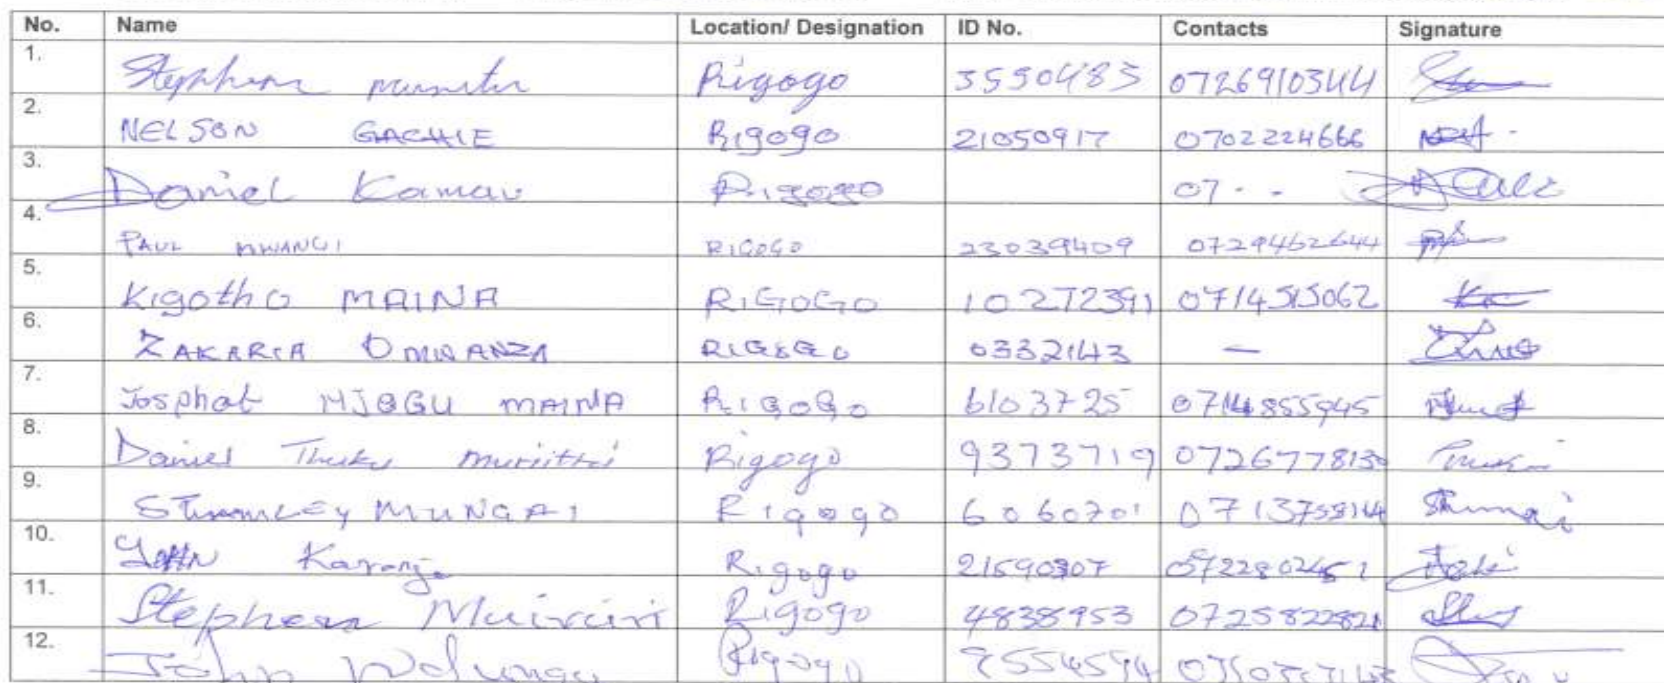 No. Name Location/ Designation ID No. Contacts Signature
1. Stephen Rigogo 3550483 0726910344
2. NELSON GACHIE Rigogo 21050917 0702224666
3. Daniel Kamau Rigogo 07 - -
4. PAUL MWANGI RIGOGO 23039409 0729462644
5. Kigotho MAINA RIGOGO 10272391 0714515062
6. ZAKARIA OMWANZA RIGOGO 0332143 —
7. Josphat NJOGU MAINA RIGOGO 6103725 0714855945
8. Daniel Thuku muriithi Rigogo 9373719 0726778130
9. STANLEY MUNGAI Rigogo 6060701
10. JOHN Karanja Rigogo 21590307
11. Stephen Muiruri Rigogo 4838953 0725822821
12. John Rigogo